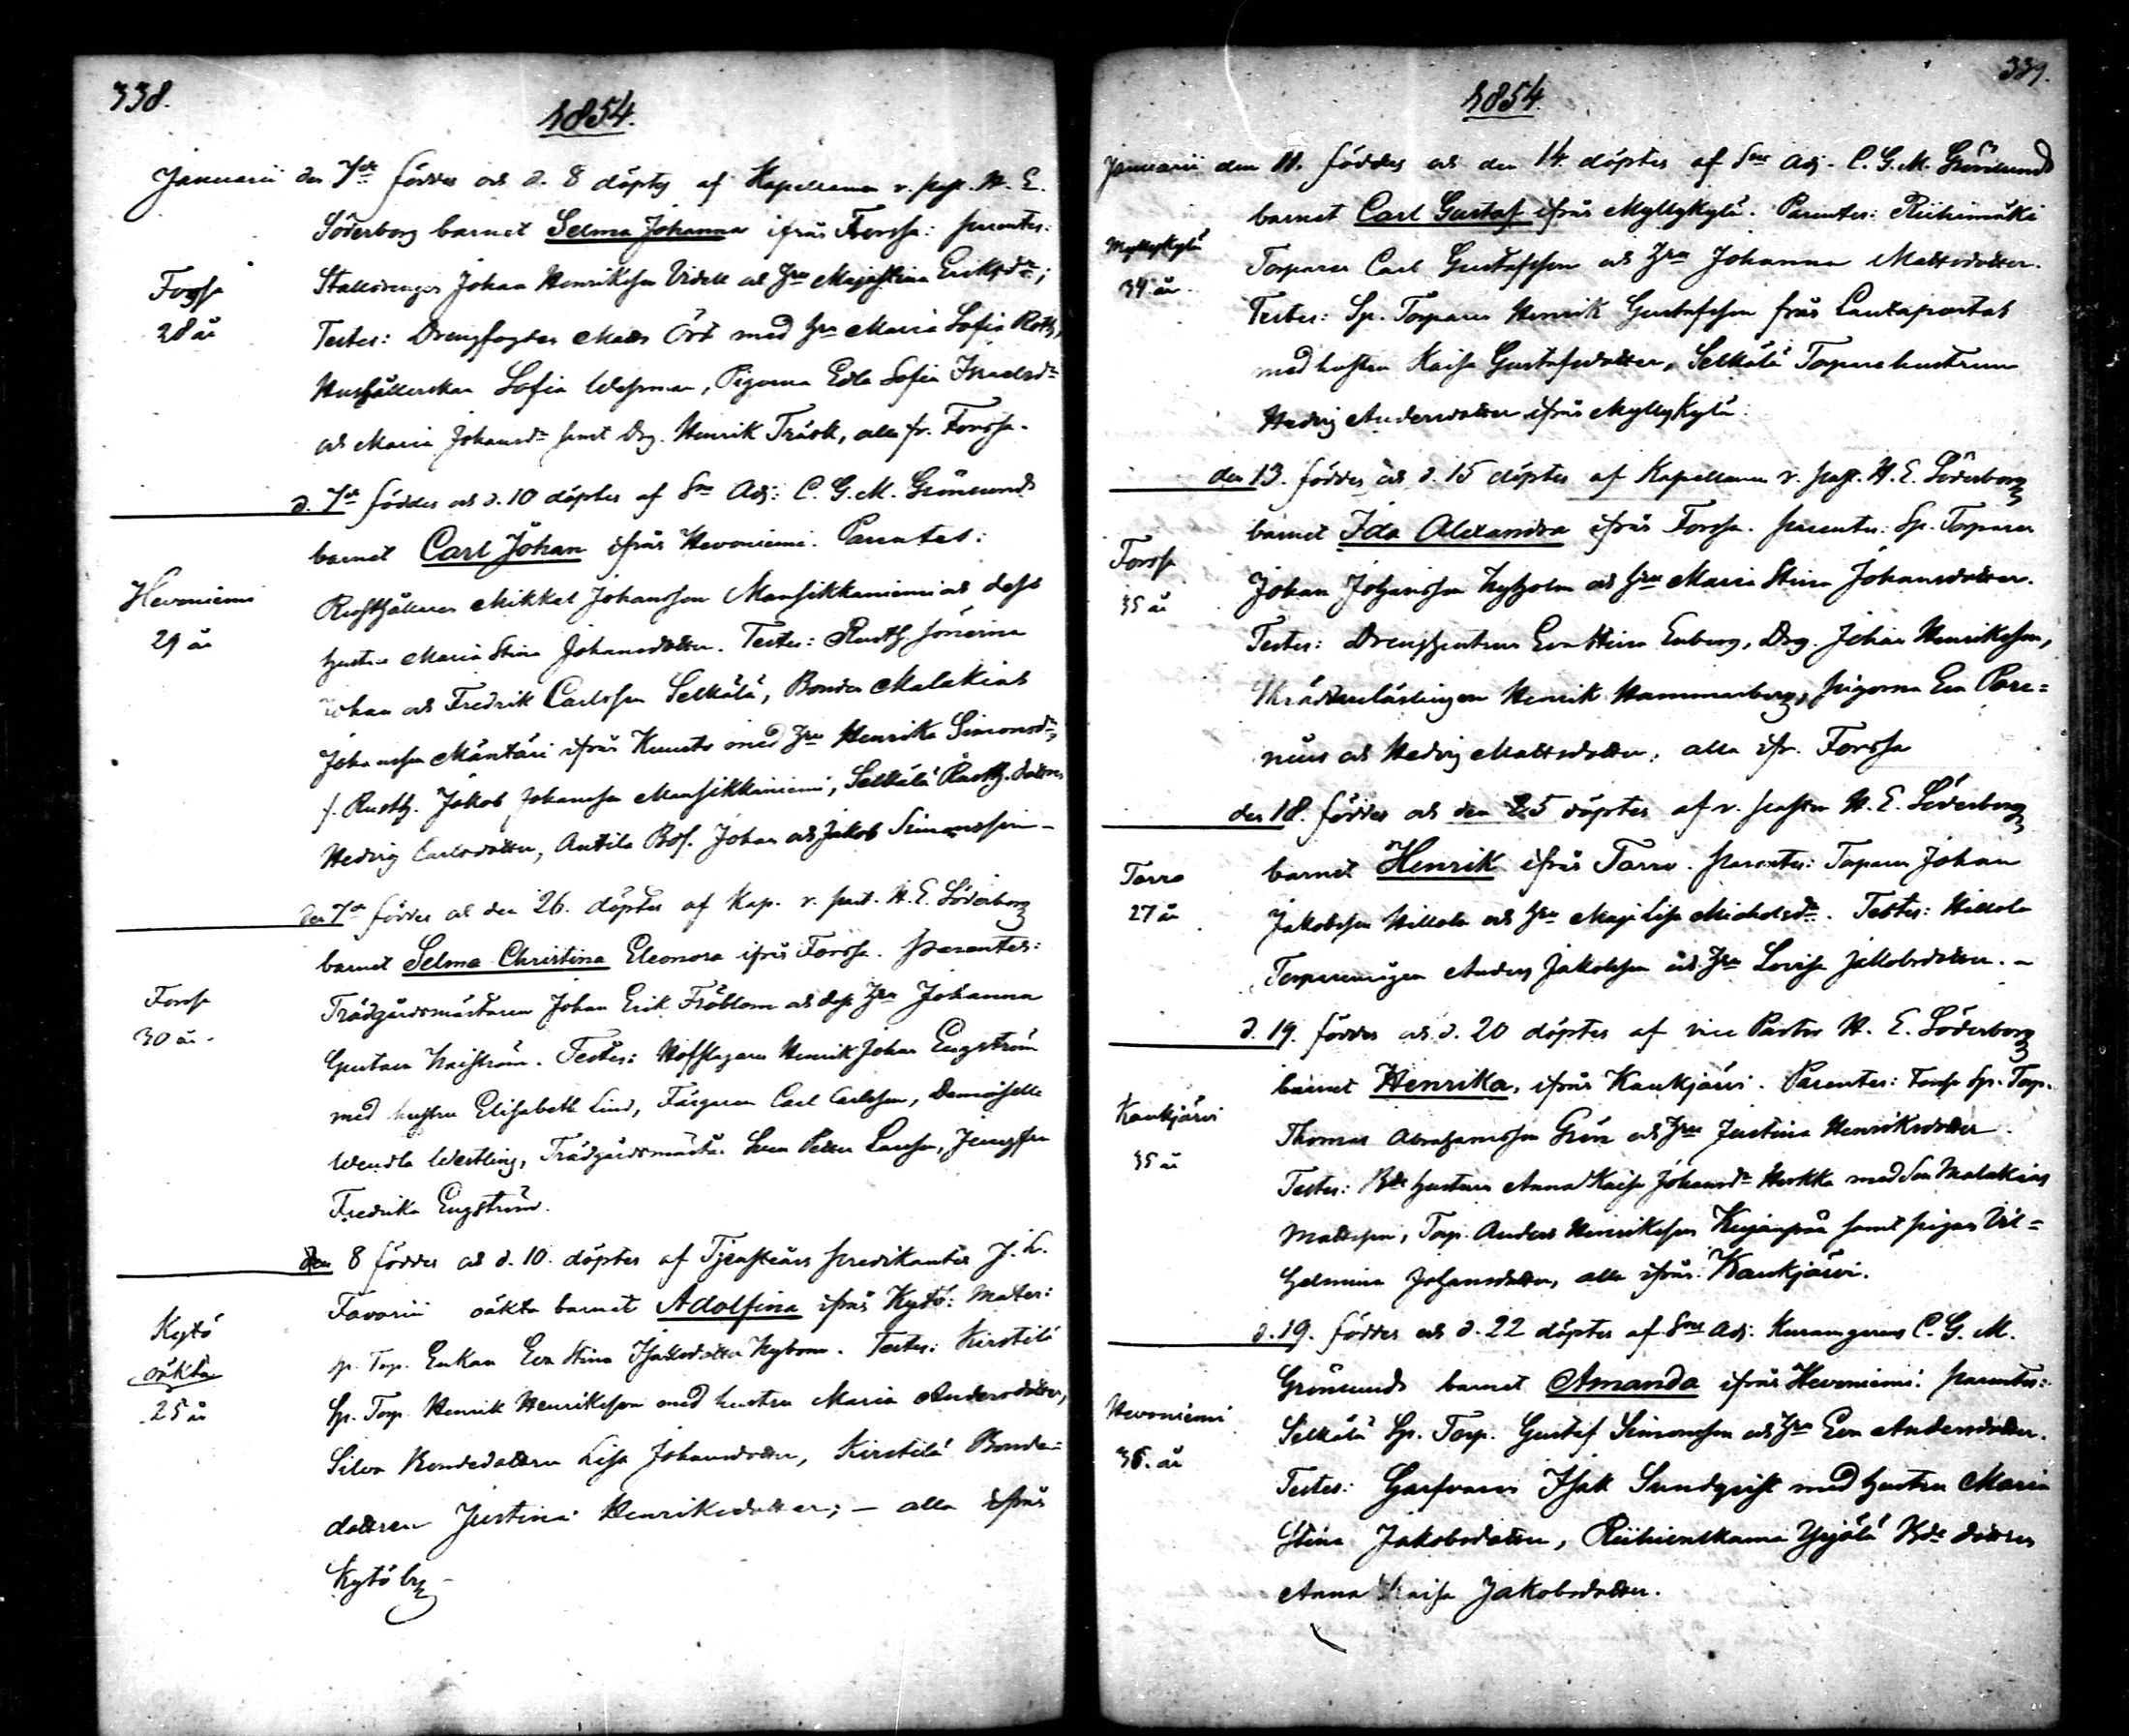 338.
1854.
Januarii den 7de föddes och d. 8 döptes af Kapellanen v. past. H. E.
Söderborg barnet Selma Johanna ifrån Forssa: parentes:
Forssa
Stalldrengen Johan Henriksson Videll och Hru Maja Stina Eriksdr;
28 år
Testes: Drengfogden Matts Ört med hru Maria Sofia Roth,
Hushållerskan Sofia Wesman, Pigorna Edla Sofia Isaksdr
och Maria Johansdr samt Drg. Henrik Träsk, alla fr. Forssa.
d. 7de föddes och d. 10 döptes af Sns Adj: C. G. M. Grönlund
barnet Carl Johan ifrån Hevoniemi. Parentes:
Hevoniemi
Rusthållaren Mikkel Johansson Mansikkaniemi och dess
29 år
hustru Maria Stina Johansdotter. Testes: Rusth. sönerna
Johan och Fredrik Carlsson Selkälä, Bonden Malakias
Johansson Mäntäri ifrån Kuusto med Hru Henrika Simonsdr,
f. Rusth. Jakob Johansson Mansikkaniemi, Selkälä Rusth. dottren
Hedvig Carlsdotter, Antila Bds. Johan och Jakob Simonssöner
den 7de föddes och den 26. döptes af Kap. v. past. H. E. Söderborg
barnet Selma Christina Eleonora ifrån Forssa. parentes:
Forssa
Trädgårdsmästaren Johan Erik Fröblom och dess Hru Johanna
30 år.
Gustava. Testes: Hofslagaren Henrik Johan Engström
med hustru Elisabeth Lind, Färgaren Carl Carlsson, Demoiselle
Wendla Westling, Trädgårdsmästa. Sven Petter Larsson, Jungfru
Fredrika Engström.
den 8 föddes och d. 10. döptes af Tjensteårs predikanten J. L.
Favorin oäkta barnet Adolfina ifrån Kytö: Mater:
Kytö
sp. Torp. Enkan Eva Stina Isaksdotter Nybom. Testes: Kirstilä
oäkta
Sp. Torp. Henrik Henriksson med hustru Maria Andersdotter,
25 år
Silva Bondedottren Lisa Johansdotter, Kirstilä Bonde-
dottren Justina Henriksdotter; – alla ifrån
Kytö by –
339.
1854.
Januarii den 11. föddes och den 14. döptes af Sns Adj. C. G. M. Grönlund
barnet Carl Gustaf ifrån Myllykylä. Parentes: Riihimäki
Myllykylä
Torparen Carl Gustafsson och Hru Johanna Mattsdotter.
34 år.
Testes: Sp. Torparen Henrik Gustafsson från Lautaportas
med hustru Kaisa Gustafsdotter, Selkälä Torparehustrun
Hedvig Andersdotter ifrån Myllykylä.
den 13. föddes och d. 15 döptes af Kapellanen v. past. H. E. Söderborg
barnet Ida Alexandra ifrån Forssa. parentes: Sp. Torparen
Forssa
Johan Johansson Nyholm och hru Maria Stina Johansdotter.
35 år
Testes: Drenghustrun Eva Stina Enberg, Drg. Johan Henriksson,
Skräddarelärlingen Henrik Hammarberg, pigorna Eva Pare=
nius och Hedvig Mattsdotter, alla ifr. Forssa
den 18. föddes och den 25 döptes af v. pastor H. E. Söderborg
barnet Henrik ifrån Torro. parentes: Torparen Johan
Torro
27 år
Jakobsson Hillola och hru Maja Lisa Michelsdr. Testes: Hillola
Torparemågen Anders Jakobsson och Hru Lovisa Jakobsdotter. –
d. 19. föddes och d. 20 döptes af vice Pastor H. E. Söderborg
barnet Henrika, ifrån Kaukjärvi. Parentes: Forssa Sp. Torp.
Kaukjärvi
Thomas Abrahamsson Grön och Hru Justina Henriksdotter.
35 år
Testes: Bde hustrun Anna Kaisa Johansdr Herkka med Son Malakias
Mattsson, Torp. Anders Henriksson Kujanpää samt pigan Vil=
helmina Johansdotter, alla ifrån Kaukjärvi.
d. 19. föddes och d. 22 döptes af Sns Adj. C. G. M.
Grönlund barnet Amanda ifrån Hevoniemi. parentes:
Hevoniemi
Selkälä Sp. Torp. Gustaf Simonsson och Hru Eva Andersdotter.
36. år
Testes: Garfvaren Isak Sundqvist med hustru Maria
Stina Jakobsdotter, Yrjölä Bde dottren
Anna Kaisa Jakobsdotter.